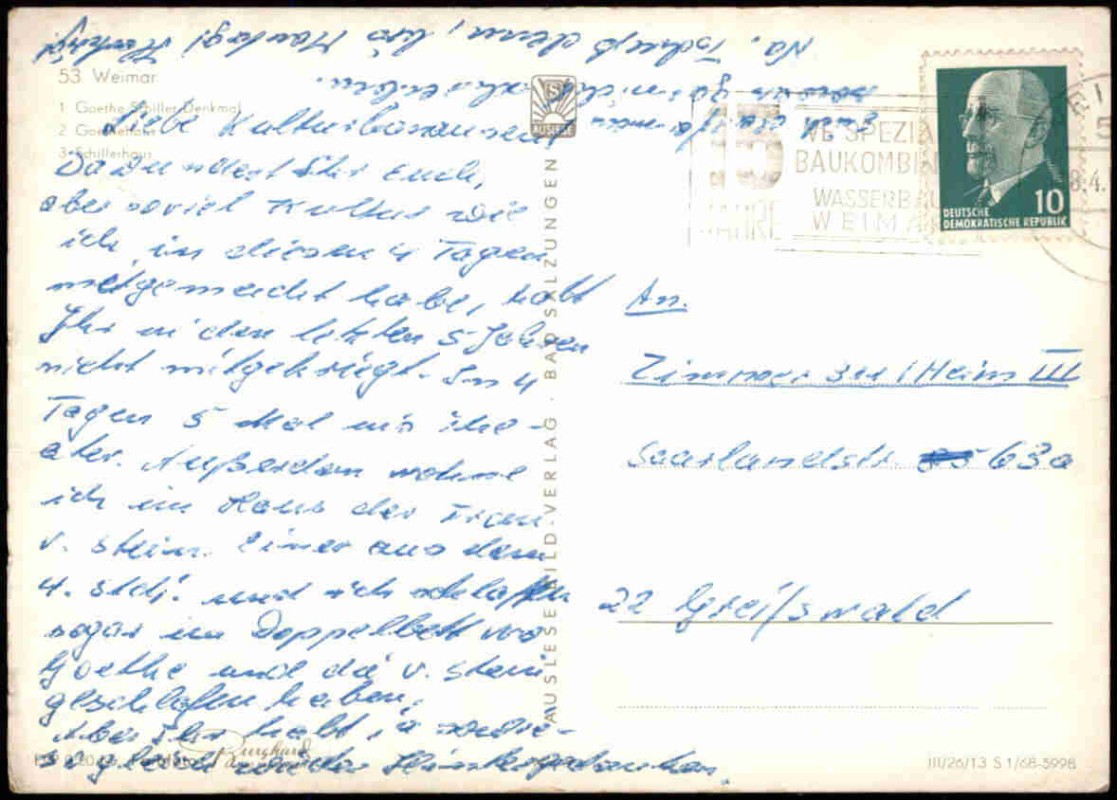 53 Weimar
1 Goethe-Schiller-Denkmal
2 Goethehaus
3 Schillerhaus
Liebe Kulturbanausen!
Da wundert Ihr Euch,
aber soviel Kultur wie
ich in diesen 4 Tagen
mitgemacht habe, habt
Ihr in den letzten 5 Jahren
nicht mitgekriegt. In 4
Tagen 5 Mal ins The-
ater. Außerdem wohne
ich im Haus der Frau
v. Stein. Einer aus dem
4. Stdj. und ich schlafen
sogar im Doppelbett wo
Goethe und die v. Stein
geschlafen haben,
Aber Ihr habt ja
sogleich wieder Hintergedanken.
Na, Tschüß denn, bis Montag!
AUSLESE
AUSLESE-BILD-VERLAG · BAD SALZUNGEN
15
JAHRE
VE SPEZIAL
BAUKOMBINAT
WASSERBAU
WEIMAR
8.4.
10
DEUTSCHE
DEMOKRATISCHE REPUBLIK
An
Zimmer 311 / Heim III
Saarlandstr. 63a
22 Greifswald
III/26/13 S 1/68-5998